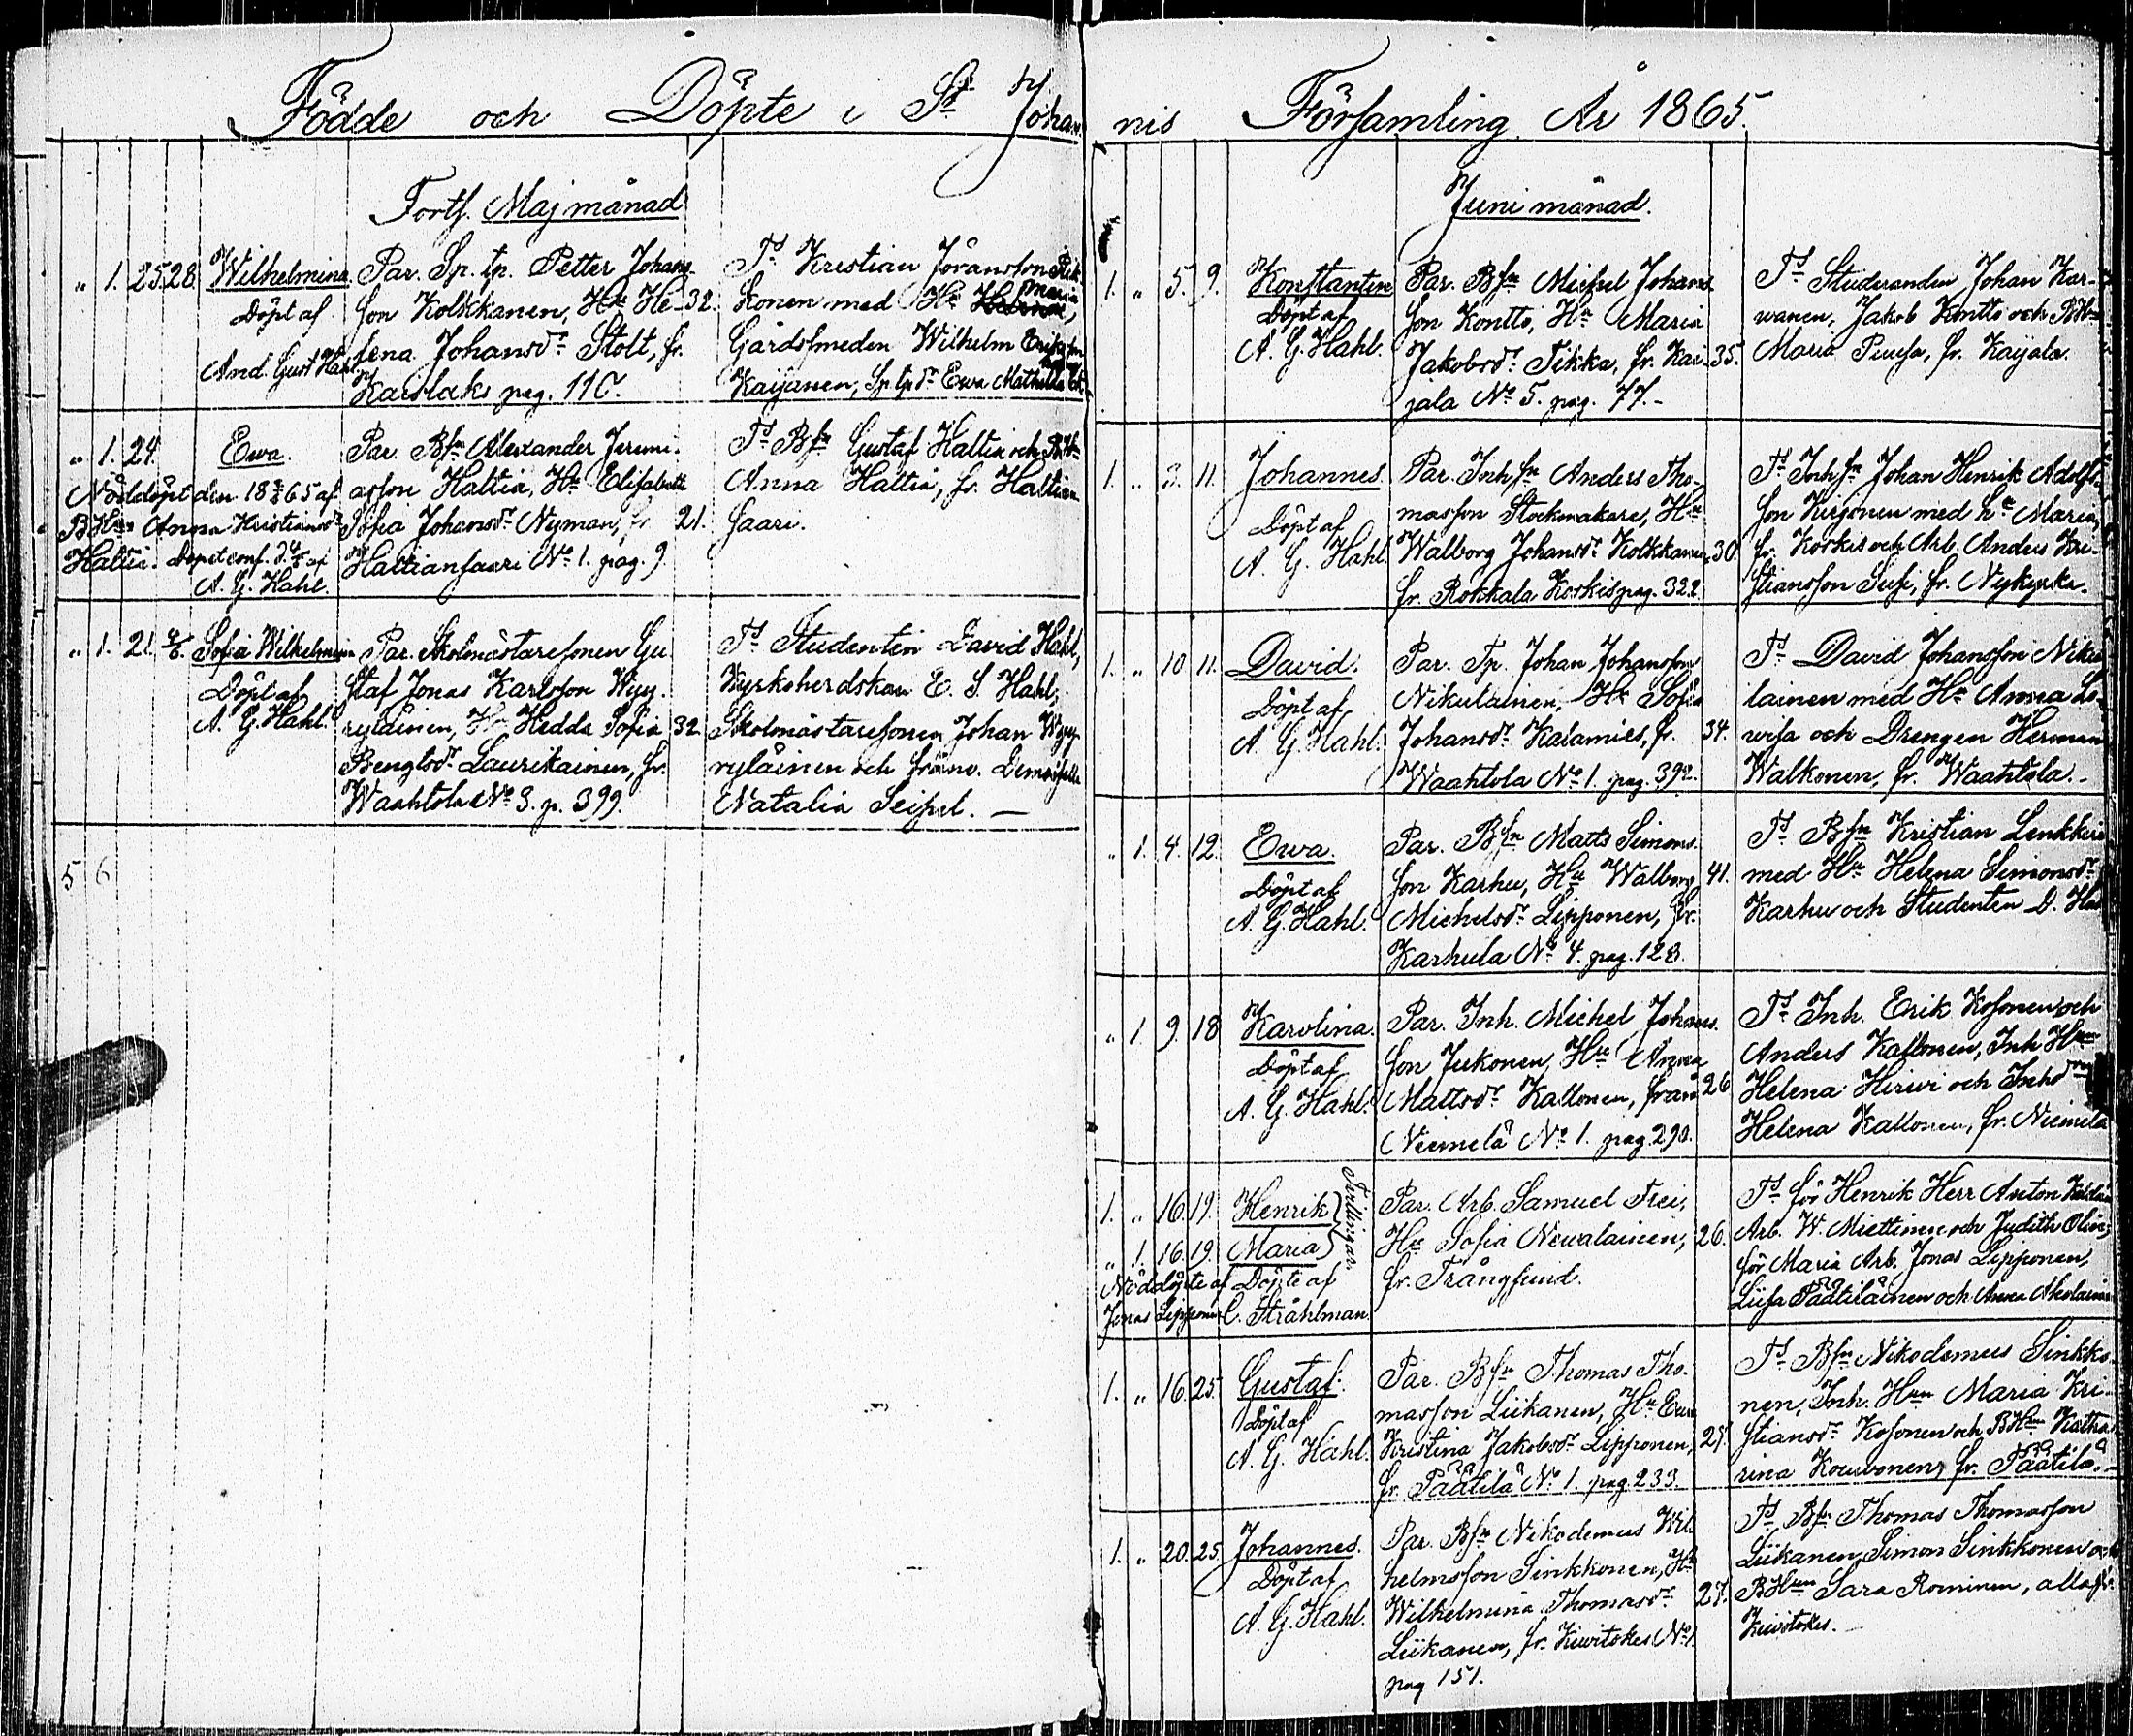 Födde och Döpte i St Johan
nis Församling År 1865.
Forts. Maj månad
„ 1. 25. 28. Wilhelmina
Döpt af
And. Gust Hahl
Par. Sp. tp. Petter Johans
son Kolkkanen, Hu He- 32.
lena Johansdr Stolt, fr.
Karslaks pag. 110.
Ts Kristian Jöransson
konen med Hu Maria
Gårdssmeden Wilhelm Eriksson
Kaijanen, Sp. tp dr Ewa Mathilda
„ 1. 24. Ewa.
Nöddöpt den 65 af
BHun Anna Kristiansdr
Haltia. Dopet conf. d. af
A. G. Hahl.
Par. Bfn Alexander Jeremi-
asson Haltia, Hu Elisabeth
Sofia Johansdr Nyman, fr. 21.
Haltiansaari No 1. pag. 9.
Ts Bfn Gustaf Haltia och
Anna Haltia, fr. Haltian
saari.
„ 1. 21. Sofia Wilhelmina
Döpt af
A. G. Hahl.
Par. Skolmästaresonen Gu
staf Jonas Karlsson Wyy-
ryläinen, Hu Hedda Sofia 32.
Bengtsdr Laurikainen, fr.
Waahtola No 3. p. 399.
Ts Studenten David Hahl,
Kyrkoherdskan E. S. Hahl,
Skolmästaresonen Johan Wyy
ryläinen och
Natalia Seipel. —
5 6
Juni månad.
1. „ 5. 9. Konstantin
Döpt af
A. G. Hahl.
Par. Bfn Michel Johans
son Kontto, Hu Maria
Jakobsdr Tikka, fr. Kai- 35.
jala No 5. pag. 77.-
Ts Studeranden Johan Kar-
wanen, Jakob Kontto och
Maria Pensa, fr. Kaijala.
1. „ 3. 11. Johannes.
Döpt af
A. G. Hahl.
Par. Inhfn Anders Tho-
masson Stockmakare, Hu
Walborg Johansdr Kolkkanen 30.
fr. Rokkala Korkis pag. 322.
Ts Inhfn Johan Henrik Adolfs
son Kirjonen med hu Maria
fr. Korkis och Arb. Anders Kri-
stiansson Susi, fr. Nykyrka.
1. „ 10. 11. David.
Döpt af
A. G. Hahl.
Par. Tp. Johan Johansson
Nikulainen, Hu Sofia
Johansdr Kalamies, fr. 34.
Waahtola No 1. pag. 392.
Ts David Johansson Niku
lainen med Hu Anna Lo-
wisa och Drengen Herman
Walkonen, fr. Waahtola.-
„ 1. 4. 12. Ewa.
Döpt af
A. G. Hahl.
Par. Bfn Matts Simons
son Karhu, Hu Walborg 41.
Michelsdr Lipponen, fr.
Karhula No 4. pag. 123.
Ts Bfn Kristian Lenkkeri
med Hu Helena Simonsdr
Karhu och Studenten D. Hahl
„ 1. 9. 18 Karolina.
Döpt af
A. G. Hahl.
Par. Inh. Michel Johans.
son Jukonen, Hu Anna
Mattsdr Kallonen, från 26
Niemelä No 1. pag. 290.
Ts Inh. Erik Kosonen och
Anders Kallonen, Inh Hun
Helena Hirwi och Inh
Helena Kallonen, fr. Niemelä
1. „ 16. 19. Henrik
„ 1. 16. 19. Maria
Tvillingar
Nöddöpte af Döpte af
Jonas Lipponen C. Stråhlman.
Par. Arb. Samuel Frei,
Hu Sofia Newalainen, 26.
fr. Trångsund.
Ts för Henrik Herr Anton
Arb. W. Miettinen och Judith Olin,
för Maria Arb. Jonas Lipponen,
Liisa Päätiläinen och Anna
1. „ 16. 25. Gustaf.
Döpt af
A. G. Hahl.
Par. Bfn Thomas Tho-
masson Liikanen, Hu Ewa
Kristina Jakobsdr Lipponen, 27.
fr. Päätilä No 1. pag. 233.
Ts Bfn Nikodemus Sinkko-
nen, Inh. Hun Maria Kri-
stiansdr Kosonen och BHun Katha
rina Kouwonen, fr. Päätilä.-
1. „ 20. 25. Johannes.
Döpt af
A. G. Hahl.
Par. Bfn Nikodemus Wil
helmsson Sinkkonen, Hu
Wilhelmina Thomasdr 27.
Liikanen, fr. Kuwitokes No 1
pag 151.
Ts Bfn Thomas Thomasson
Liikanen, Simon Sinkkonen och
BHun Sara Rominen, alla fr.
Kuwitokes.-